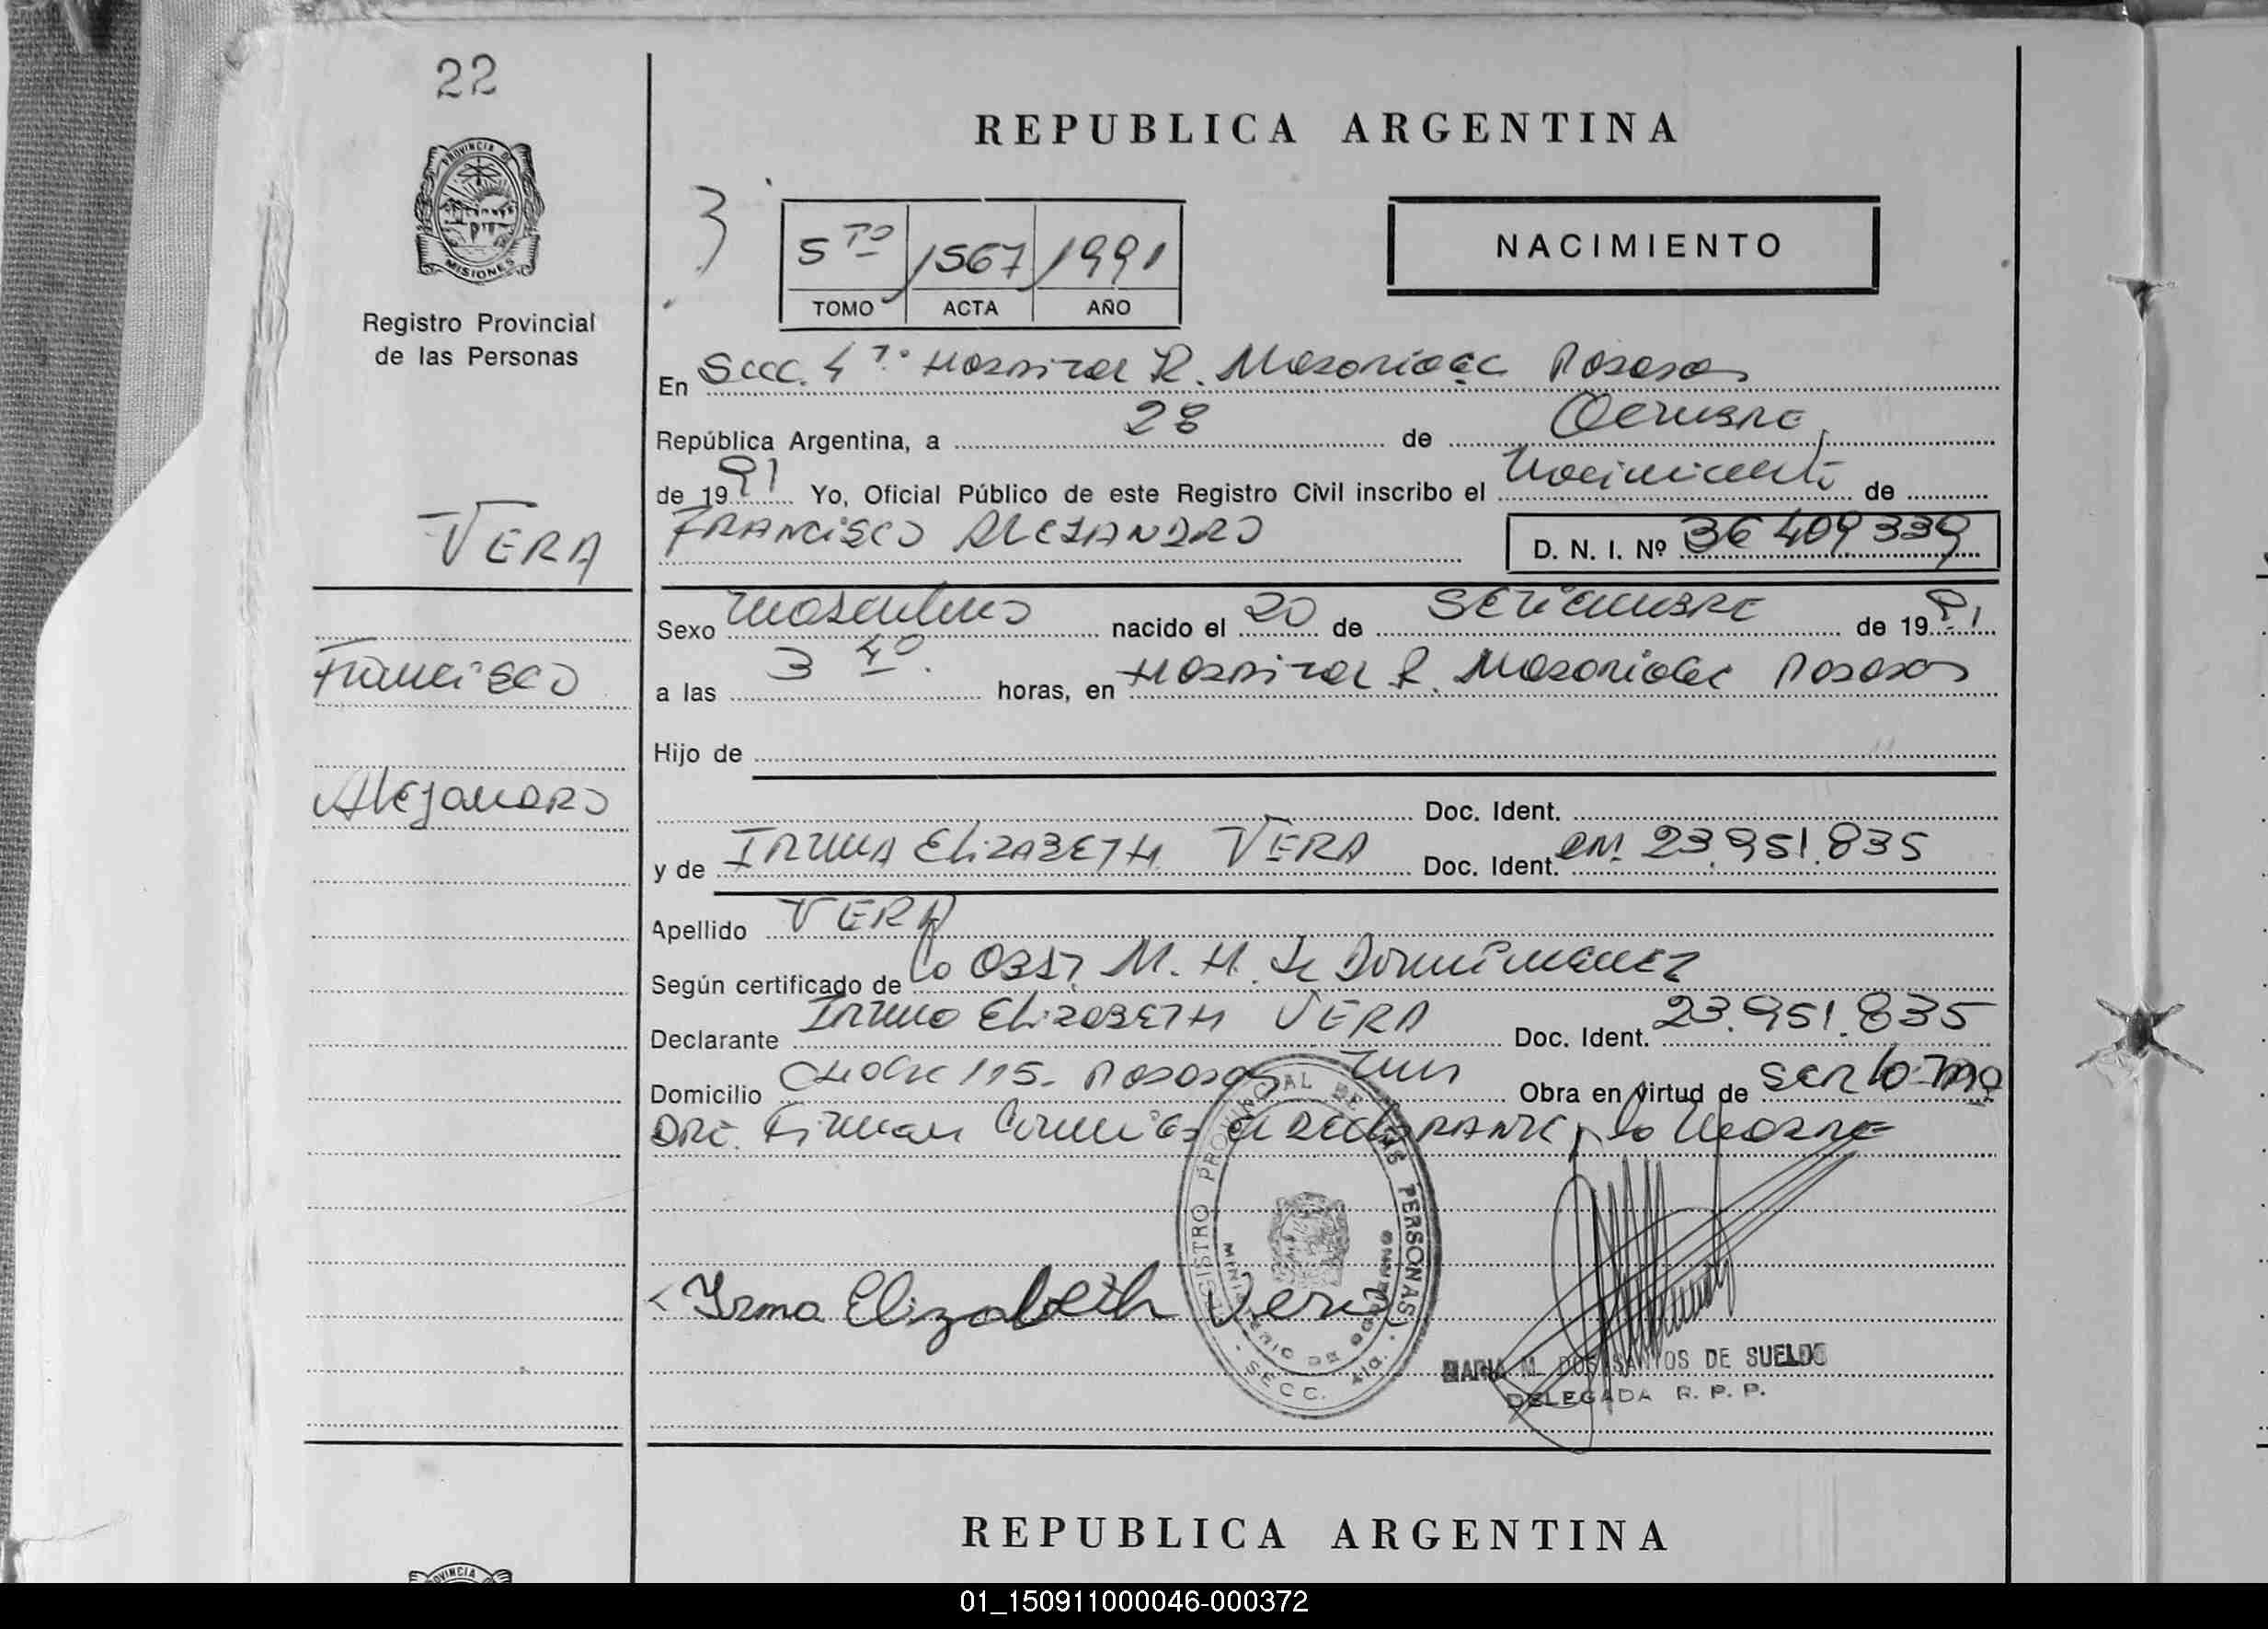 22
PROVINCIA DE
MISIONES
Registro Provincial
de las Personas
VERA
Francisco
Alejandro
REPUBLICA ARGENTINA
3
5 TO 1567 1991
TOMO ACTA AÑO
NACIMIENTO
En Secc. 4ta Hospital R. Madariaga Posadas
República Argentina, a 28 de Octubre
de 1991 Yo, Oficial Público de este Registro Civil inscribo el Nacimiento de
FRANCISCO ALEJANDRO D. N. I. Nº 36 409 339
Sexo Masculino nacido el 20 de SETIEMBRE de 1991
a las 3 40 horas, en Hospital R. Madariaga Posadas
Hijo de
Doc. Ident.
y de IRMA ELIZABETH VERA Doc. Ident. 23.951.835
Apellido VERA
Según certificado de la Obst. M. H. de
Declarante Irma Elizabeth VERA Doc. Ident. 23.951.835
Domicilio 115 - Posadas Mns Obra en virtud de ser la ma
dre. Firman el DECLARANTE la Madre
Irma Elizabeth Vera
REGISTRO PROVINCIAL DE LAS PERSONAS
MINISTERIO DE GOBIERNO
SECC. 4ta.
MARIA M. DOS SANTOS DE SUELDO
DELEGADA R. P. P.
REPUBLICA ARGENTINA
PROVINCIA
01_150911000046-000372